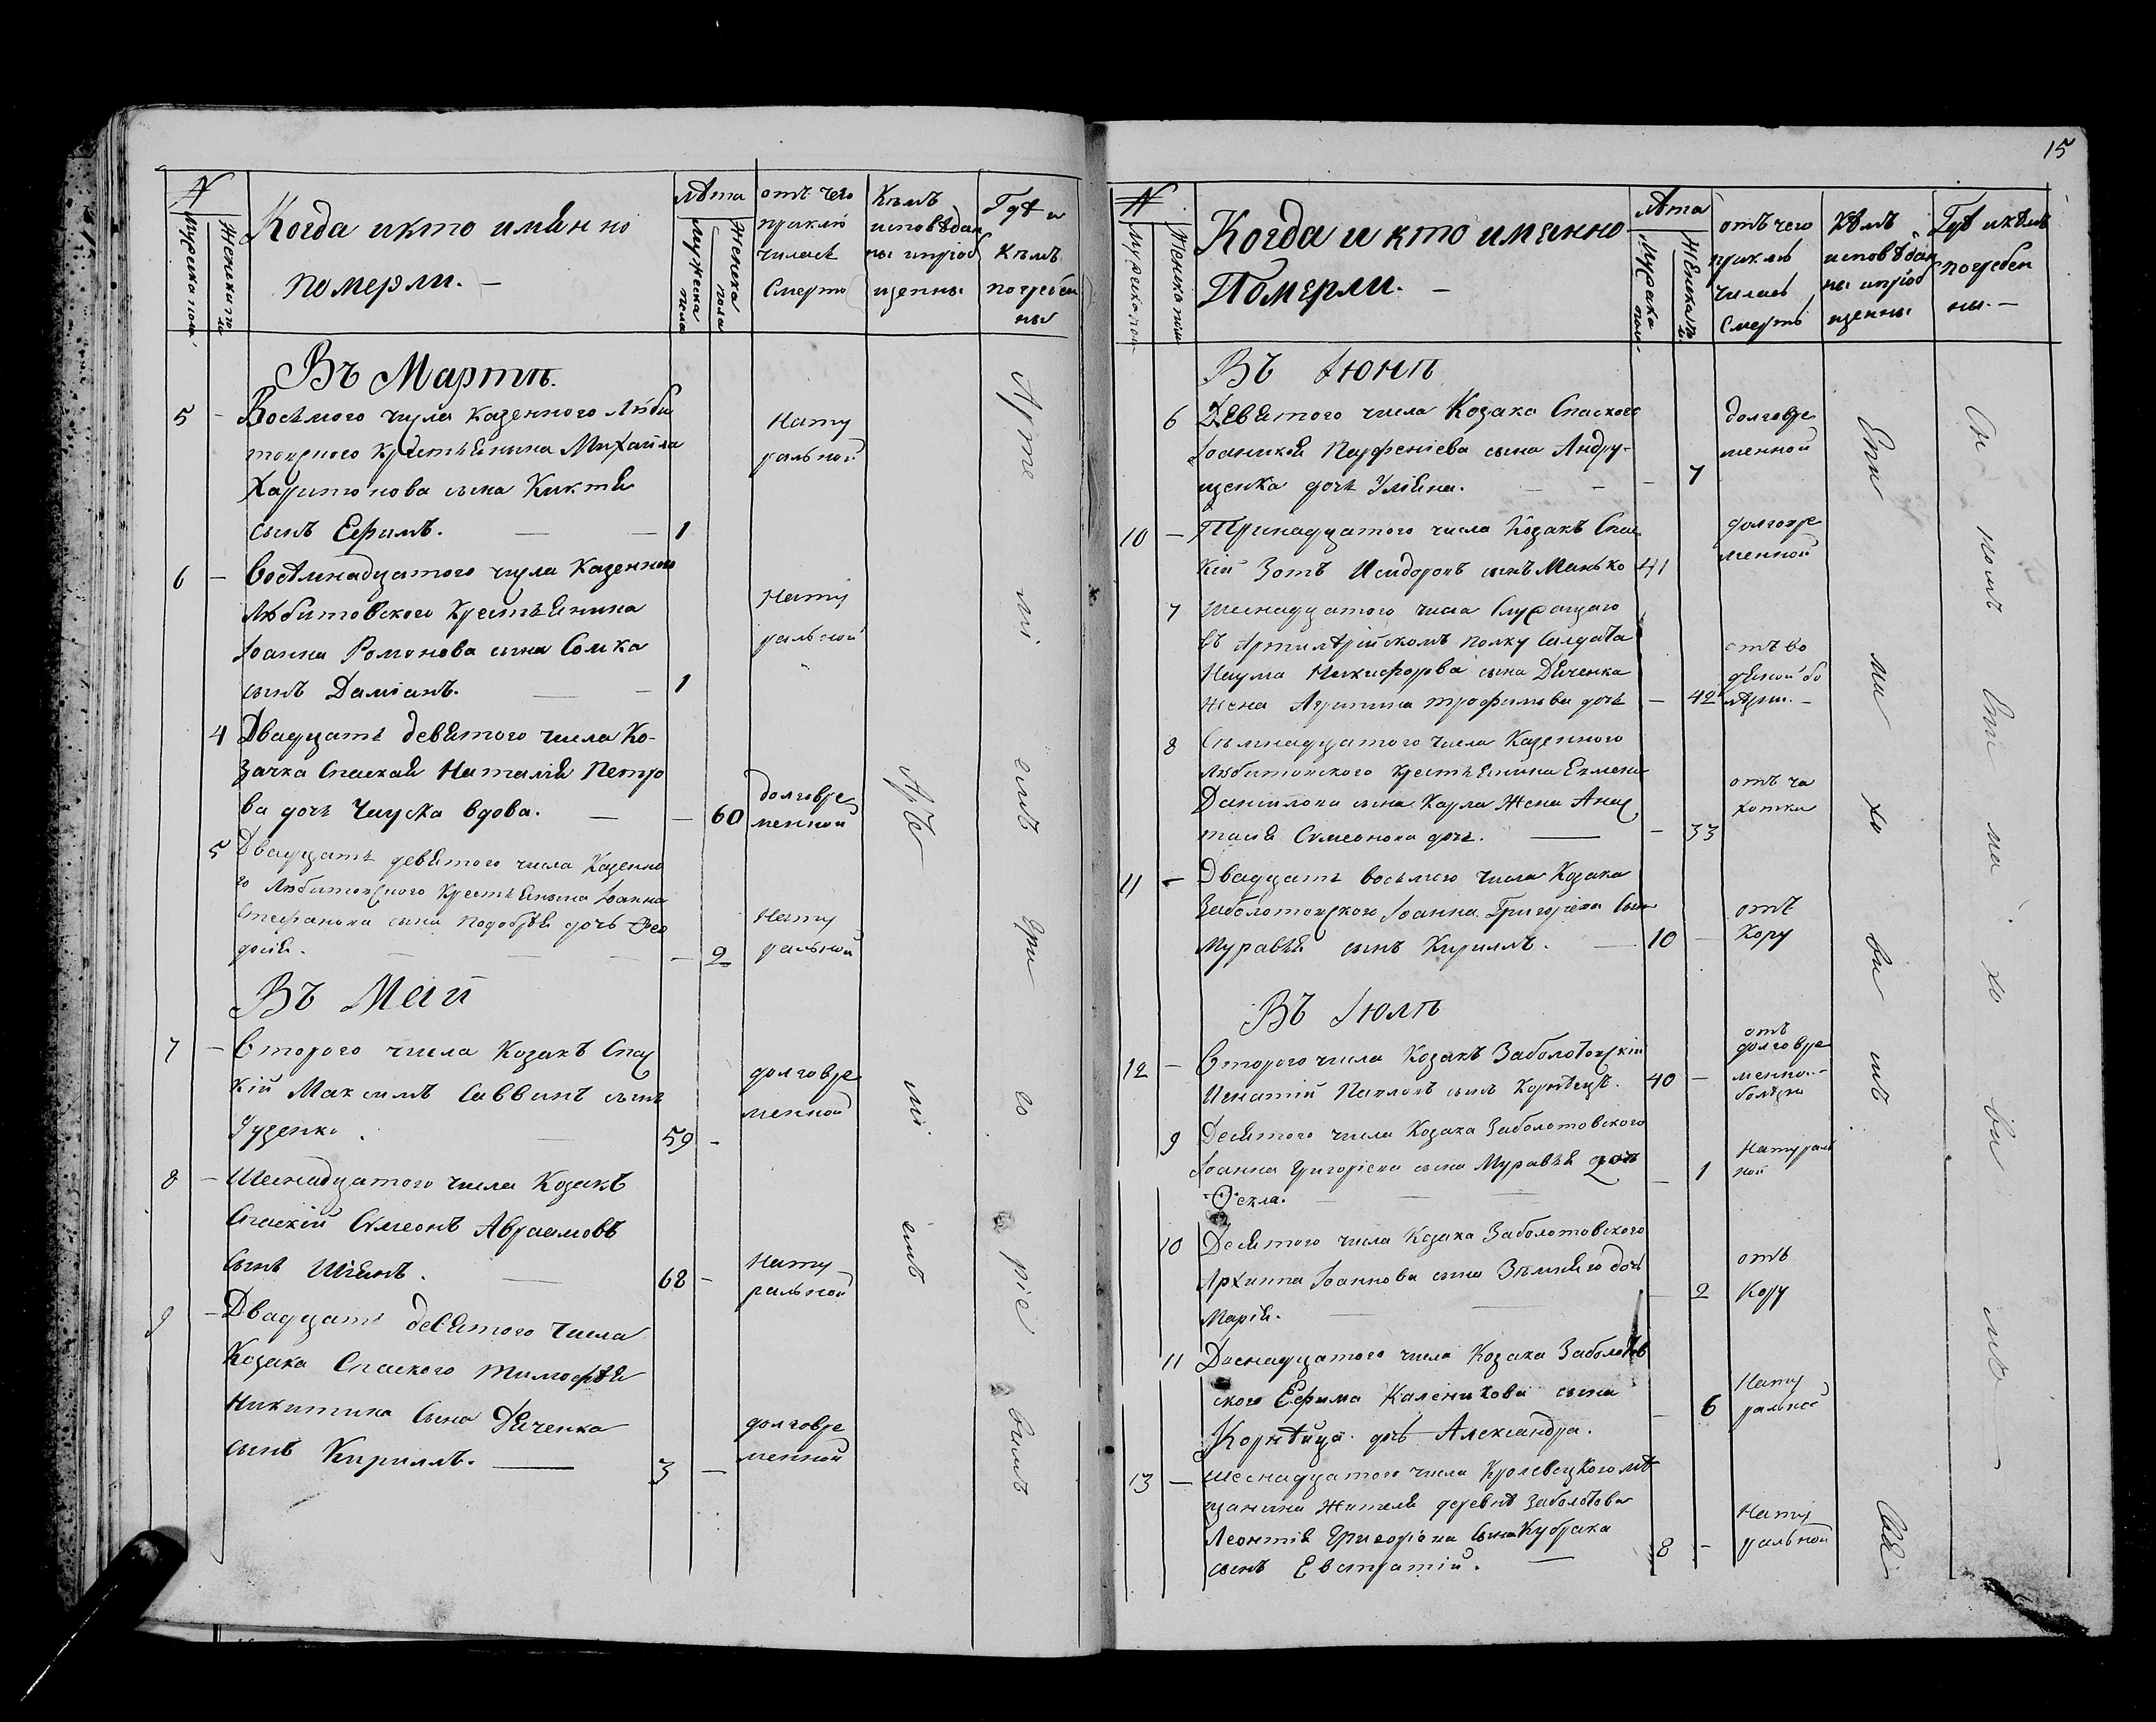 15
N
Мужеска пола
Женска пола
Когда и кто именно
померли. —
Лѣта
Мужеска пола
Женска пола
отъ чего
приклю
чилась
Смерть
Кѣмъ
исповѣдан
ны и приоб
щенны
Гдѣ и
кѣмъ
погребен
ны
Въ Мартѣ.
5 — Восьмого числа казенного Люби
товского крестьянина Михайла
Харитонова сына Киктя
сынъ Ефимъ. — — 1
Нату
ральной
6 — Восѣмнадцатого числа казенного
Любитовского крестьянина
Іоанна Романова сына Сомка
сынъ Даміанъ. — — 1
Нату
ральной
4 Двадцать девятого числа Ко-
зачка Спаская Наталія Петро
ва дочь вдова. — — 60
долговре
менной
5 Двадцать девятого числа казенно
го Любитовского крестьянина Іоанна
Стефанова сына дочь Фео
досія. — — — — 2
Нату
ральной
Въ Маіи
7 — Второго числа Козакъ Спас
кій Максимъ Саввинъ сынъ
Гузенко. — 59 —
долговре
менной
8 — Шеснадцатого числа Козакъ
Спаскій Сѵмеонъ Авраамовъ
сынъ — 68 —
Нату
ральной
9 — Двадцать девятого числа
Козака Спаского Тимофѣя
Никитина сына Дяченка
сынъ Кириллъ. — 3 —
долговре
менной
N
Мужеска пола
Женска пола
Когда и кто именно
Померли. —
Лѣта
Мужеска пола
Женска пола
отъ чего
приклю
чилась
Смерть
Кѣмъ
исповѣдан
ны и приоб
щенны
Гдѣ и кѣмъ
погребен
ны. —
Въ Іюнѣ
6 Девятого числа Козака Спаского
Іоаникія Парфеніева сына Андру-
щенка дочь Уліяна. — — — 7
долговре
менной
10 — Тринадцатого числа Козакъ Спас
кій Зотъ Исидоровъ сынъ Манько 41
долговре
менной
7 Шеснадцатого числа Служащаго
въ Артилѣрійскомъ полку Салдата
Наума Никифорова сына Дяченка
жена Агрипина Трофимова дочь — 42
отъ во
дяной бо
лѣзни. —
8 Семнадцатого числа Казенного
Любитовского крестьянина
Даніилова сына жена Анас
тасія Сѵмеонова дочь. — — 33
отъ ча
хотки
11 — Двадцать восьмого числа Козака
Заболотовского Іоанна Григоріева сына
Муравѣя сынъ Кириллъ. — 10 —
отъ
Кору
Въ Іюлѣ
12 — Второго числа Козакъ Заболотовскій
Игнатій Павловъ сынъ Корнѣецъ. 40 —
отъ
долговре
менной
болѣзни
9 Десятого числа Козака Заболотовского
Іоанна Григоріева сына Муравѣя дочь
Ѳекла. — — — — 1
Натураль
ной
10 Десятого числа Козака Заболотовского
Архиппа Іоаннова сына дочь
Марія. — — — 2
отъ
Кору
11 Двенадцатого числа Козака Заболотов
ского Ефима Каленикова сына
Корнѣйца дочь Александра. — 6
Нату
ральной
13 — Шеснадцатого числа Кролевецкого мѣ
щанина Жителя деревнѣ Заболотова
Леонтія Григоріева сына Кубрака
сынъ Евстратій. — 8 —
Нату
ральной